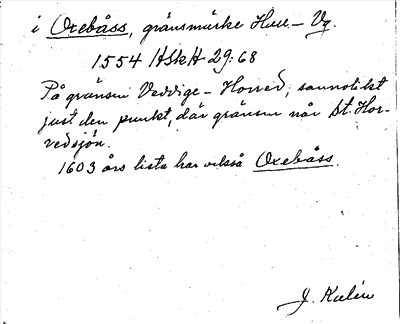 i Oxebåss, gränsmärke Hall. – Vg.
1554 HSkH 29:68
På gränsen Veddige – Horred, sannolikt
just den punkt, där gränsen når St. Hor-
redsjön.
1603 års lista har också Oxebåss.
J. Kalén